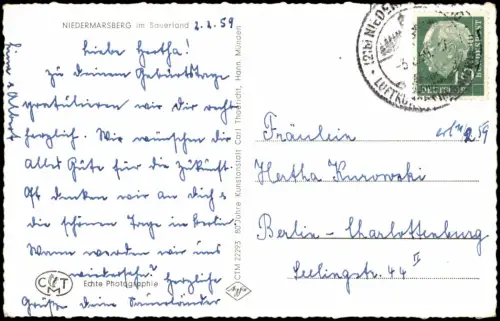 NIEDERMARSBERG im Sauerland 2.2.59
Liebe Hertha!
Zu Deinem Geburtstage
gratulieren wir Dir recht
herzlich. Wir wünschen dir
alles Gute für die Zukunft.
Oft denken wir an dich &
die schönen Tage in Berlin
Wann werden wir uns
wiedersehn? Herzliche
Grüße Deine Sauerländer
CTM
Echte Photographie
CTM 22293 80 Jahre Kunstanstalt Carl Thoericht, Hann. Münden
Agfa
(21b) NIEDER
LUFTKURORT
10
DEUTSCHE BUNDESPOST
Fräulein
2.59
Hertha Kurowski
Berlin-Charlottenburg
Seelingstr. 44 II